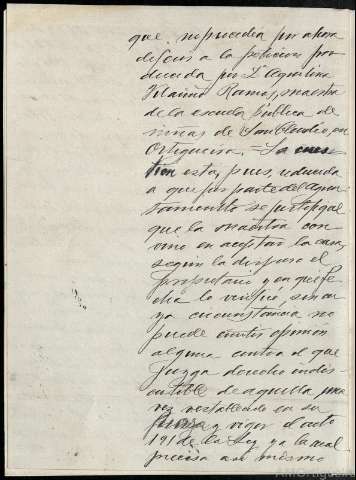 que no procedia por ahora
deferir a la peticion pro-
ducida por Dª Agustina
Ramos, maestra
de la escuela pública de
niñas de San Claudio, en
Ortigueira. = La cues-
tion esta, pues, reducida
a que por parte del Ayun-
tamiento se justifique
que la maestra con-
vino en aceptar la casa,
segun la dispuso el
propietario y en que fe-
cha lo verificó, sin cu-
ya circunstancia no
puede emitir opinión
alguna contra el que
juzga derecho indis-
cutible de aquella una
vez restablecido en su
fuerza y vigor el arto
191 de la Ley ya la cual
precisa así mismo